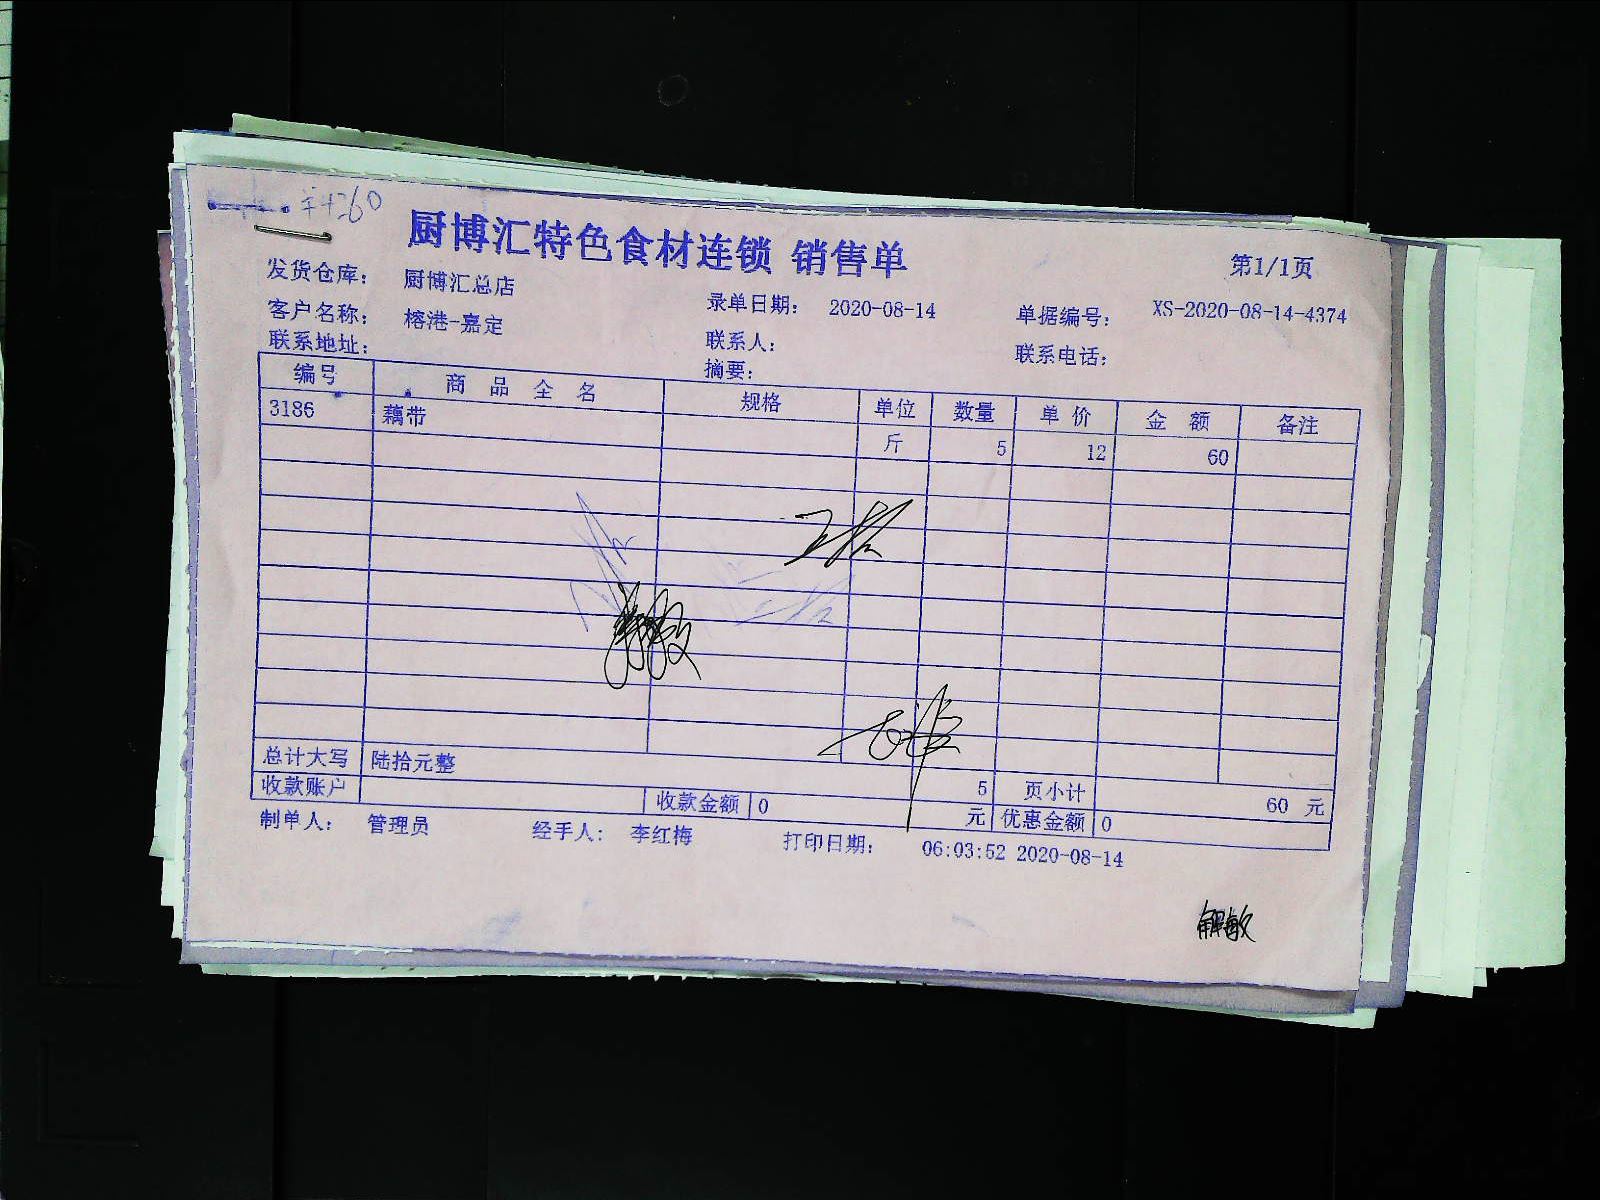 ¥4260
厨博汇特色食材连锁 销售单
第1/1页
发货仓库： 厨博汇总店 录单日期： 2020-08-14 单据编号： XS-2020-08-14-4374
客户名称： 榕港-嘉定 联系人： 联系电话：
联系地址： 摘要：
编号 商品全名 规格 单位 数量 单价 金额 备注
3186 藕带 斤 5 12 60
总计大写 陆拾元整 5 页小计 60 元
收款账户 收款金额 0 元 优惠金额 0
制单人： 管理员 经手人： 李红梅 打印日期： 06:03:52 2020-08-14